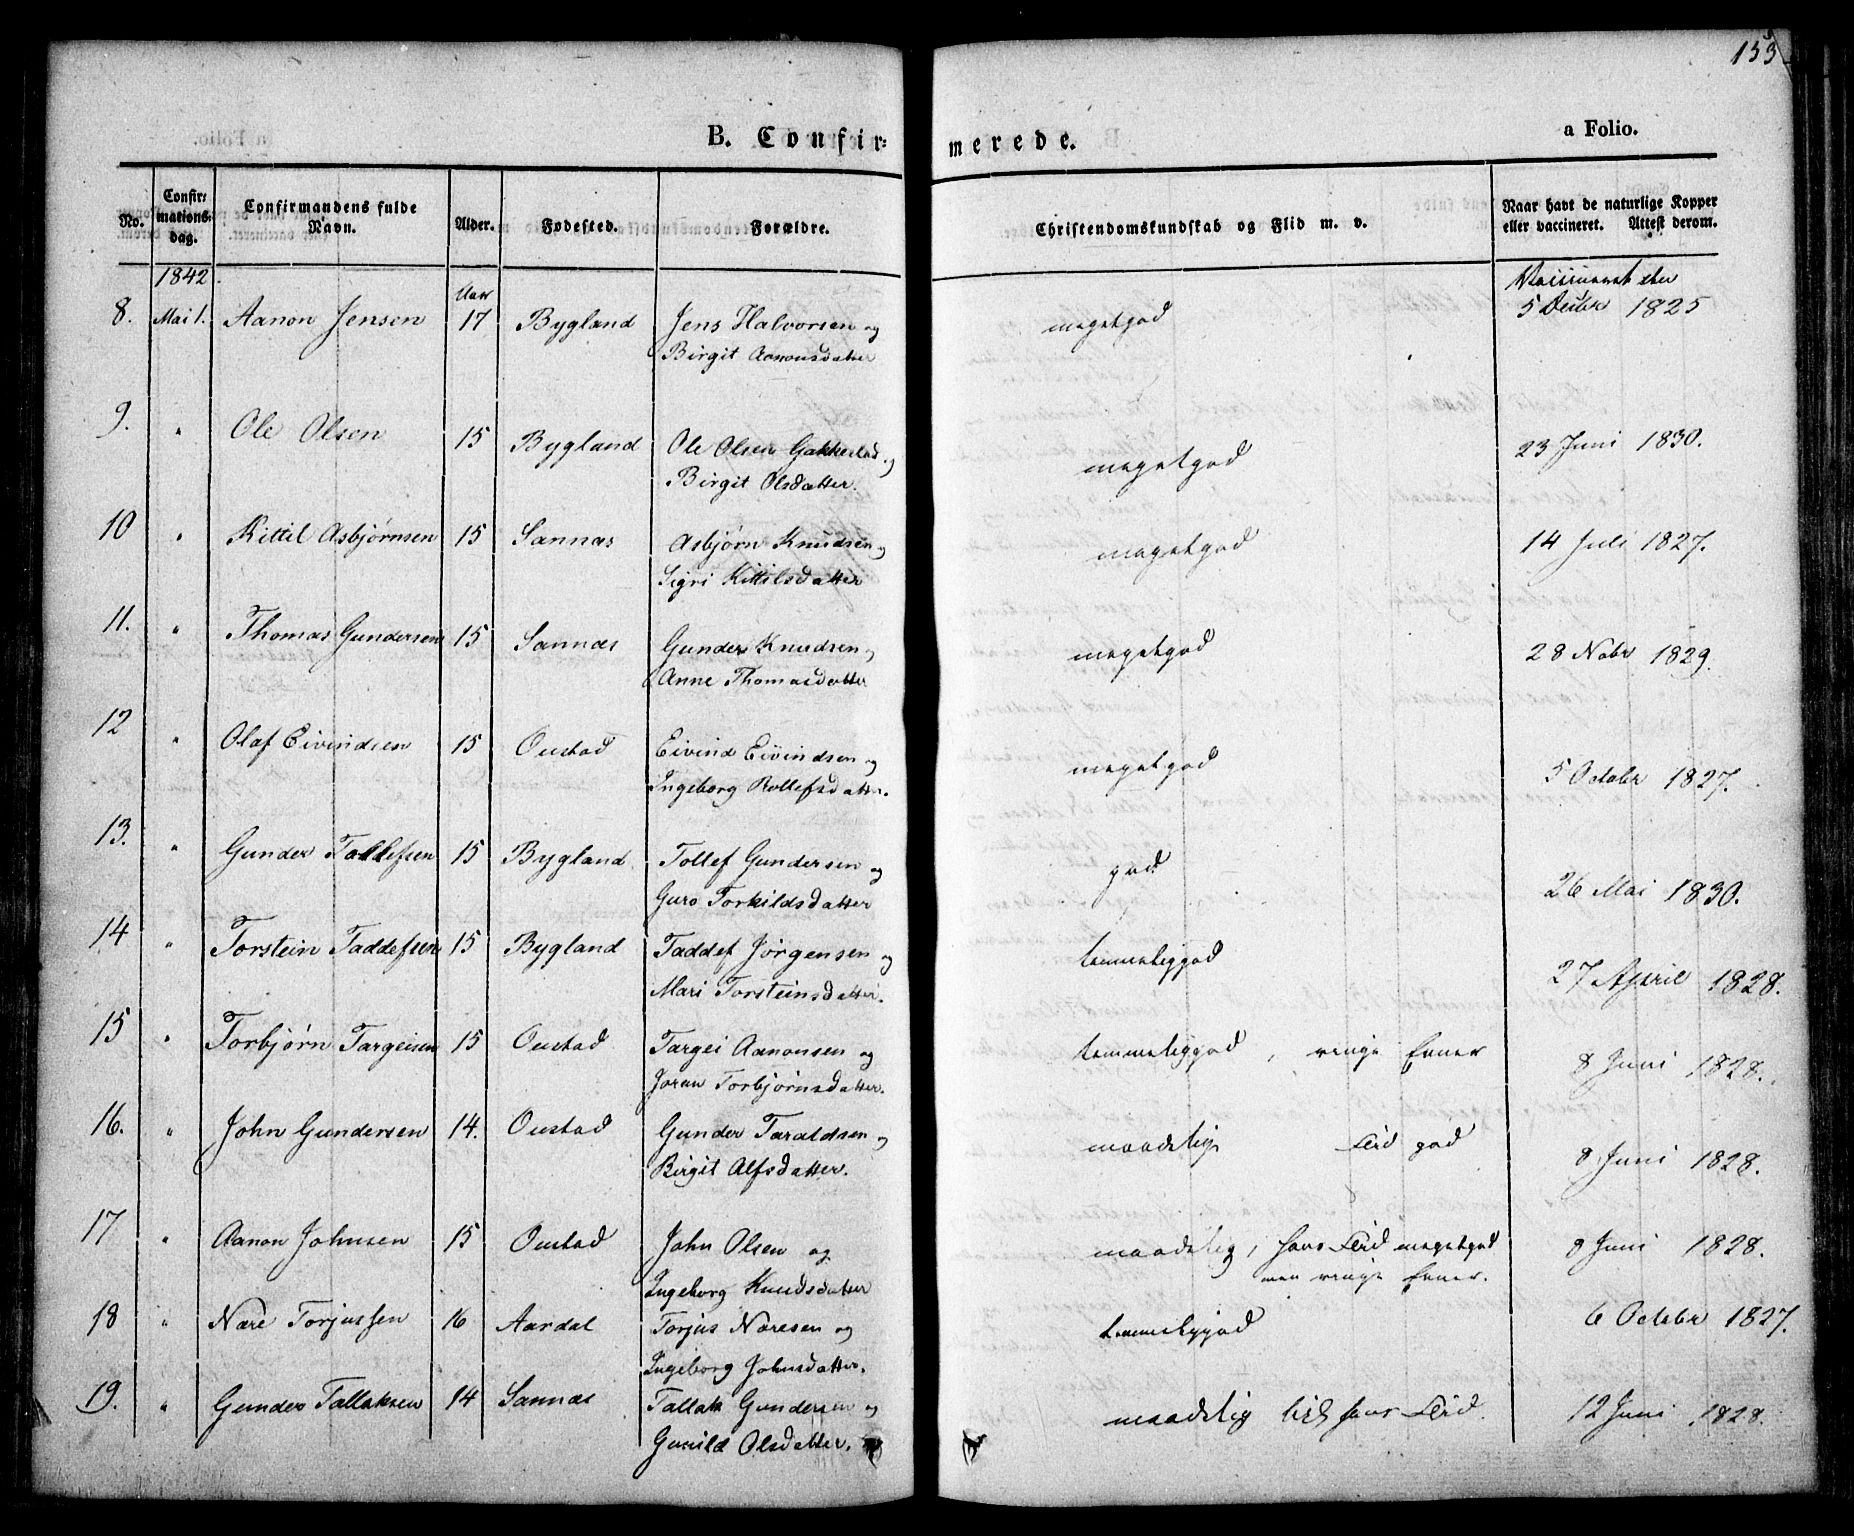 153
B. Confir= merede. a Folio.
No. Confir= mations= dag. Confirmandens fulde Navn. Alder. Fødested. Forældre. Christendomskundskab og Flid m. v. Naar havt de naturlige Kopper eller vaccineret. Attest derom.
1842. Aar Vaccineret den
8. Mai 1. Aanon Jensen 17 Bygland Jens Halvorsen og megetgod 5 Decbr 1825
Birgit Aanonsdatter
9. " Ole Olsen 15 Bygland Ole Olsen og megetgod 23 Juni 1830.
Birgit Olsdatter.
10 " Kittil Asbjørnsen 15 Sannas Asbjørn Knudsen og megetgod 14 Juli 1827.
Sigri Kittilsdatter
11. " Thomas Gundersen 15 Sannas Gunder Knudsen og megetgod 28 Nobr 1829.
Anne Thomasdatter
12 " Olaf Eivindsen 15 Oustad Eivind Eivindsen og megetgod 5 Octobr 1827.
Ingeborg Rollefsdatter.
13. " Gunder Tollefsen 15 Bygland Tollef Gundersen og god 26 Mai 1830.
Guro Torkildsdatter
14 " Torstein Taddefsen 15 Bygland Taddef Jørgensen og temmeliggod 27 April 1828.
Mari Torsteinsdatter.
15 " Torbjørn Targeisen 15 Oustad Targei Aanonsen og temmeliggod, ringe Evner 8 Juni 1828.
Joran Torbjørnsdatter.
16. " John Gundersen 14. Oustad Gunder Taraldsen og maadelig Flid god 8 Juni 1828.
Birgit Alfsdatter.
17 " Aanon Johnsen 15 Oustad John Olsen og maadelig, hans Flid megetgod 8 Juni 1828.
Ingeborg Knudsdatter men ringe Evner.
18 " Nare Torjussen 16 Aardal Torjus Naresen og temmeliggod 6 Octobr 1827.
Ingeborg Johnsdatter.
19. " Gunder Tallaksen 14 Sannas Tallak Gundersen og maadelig ligesaa hans Flid. 12 Juni 1828.
Gunild Olsdatter.